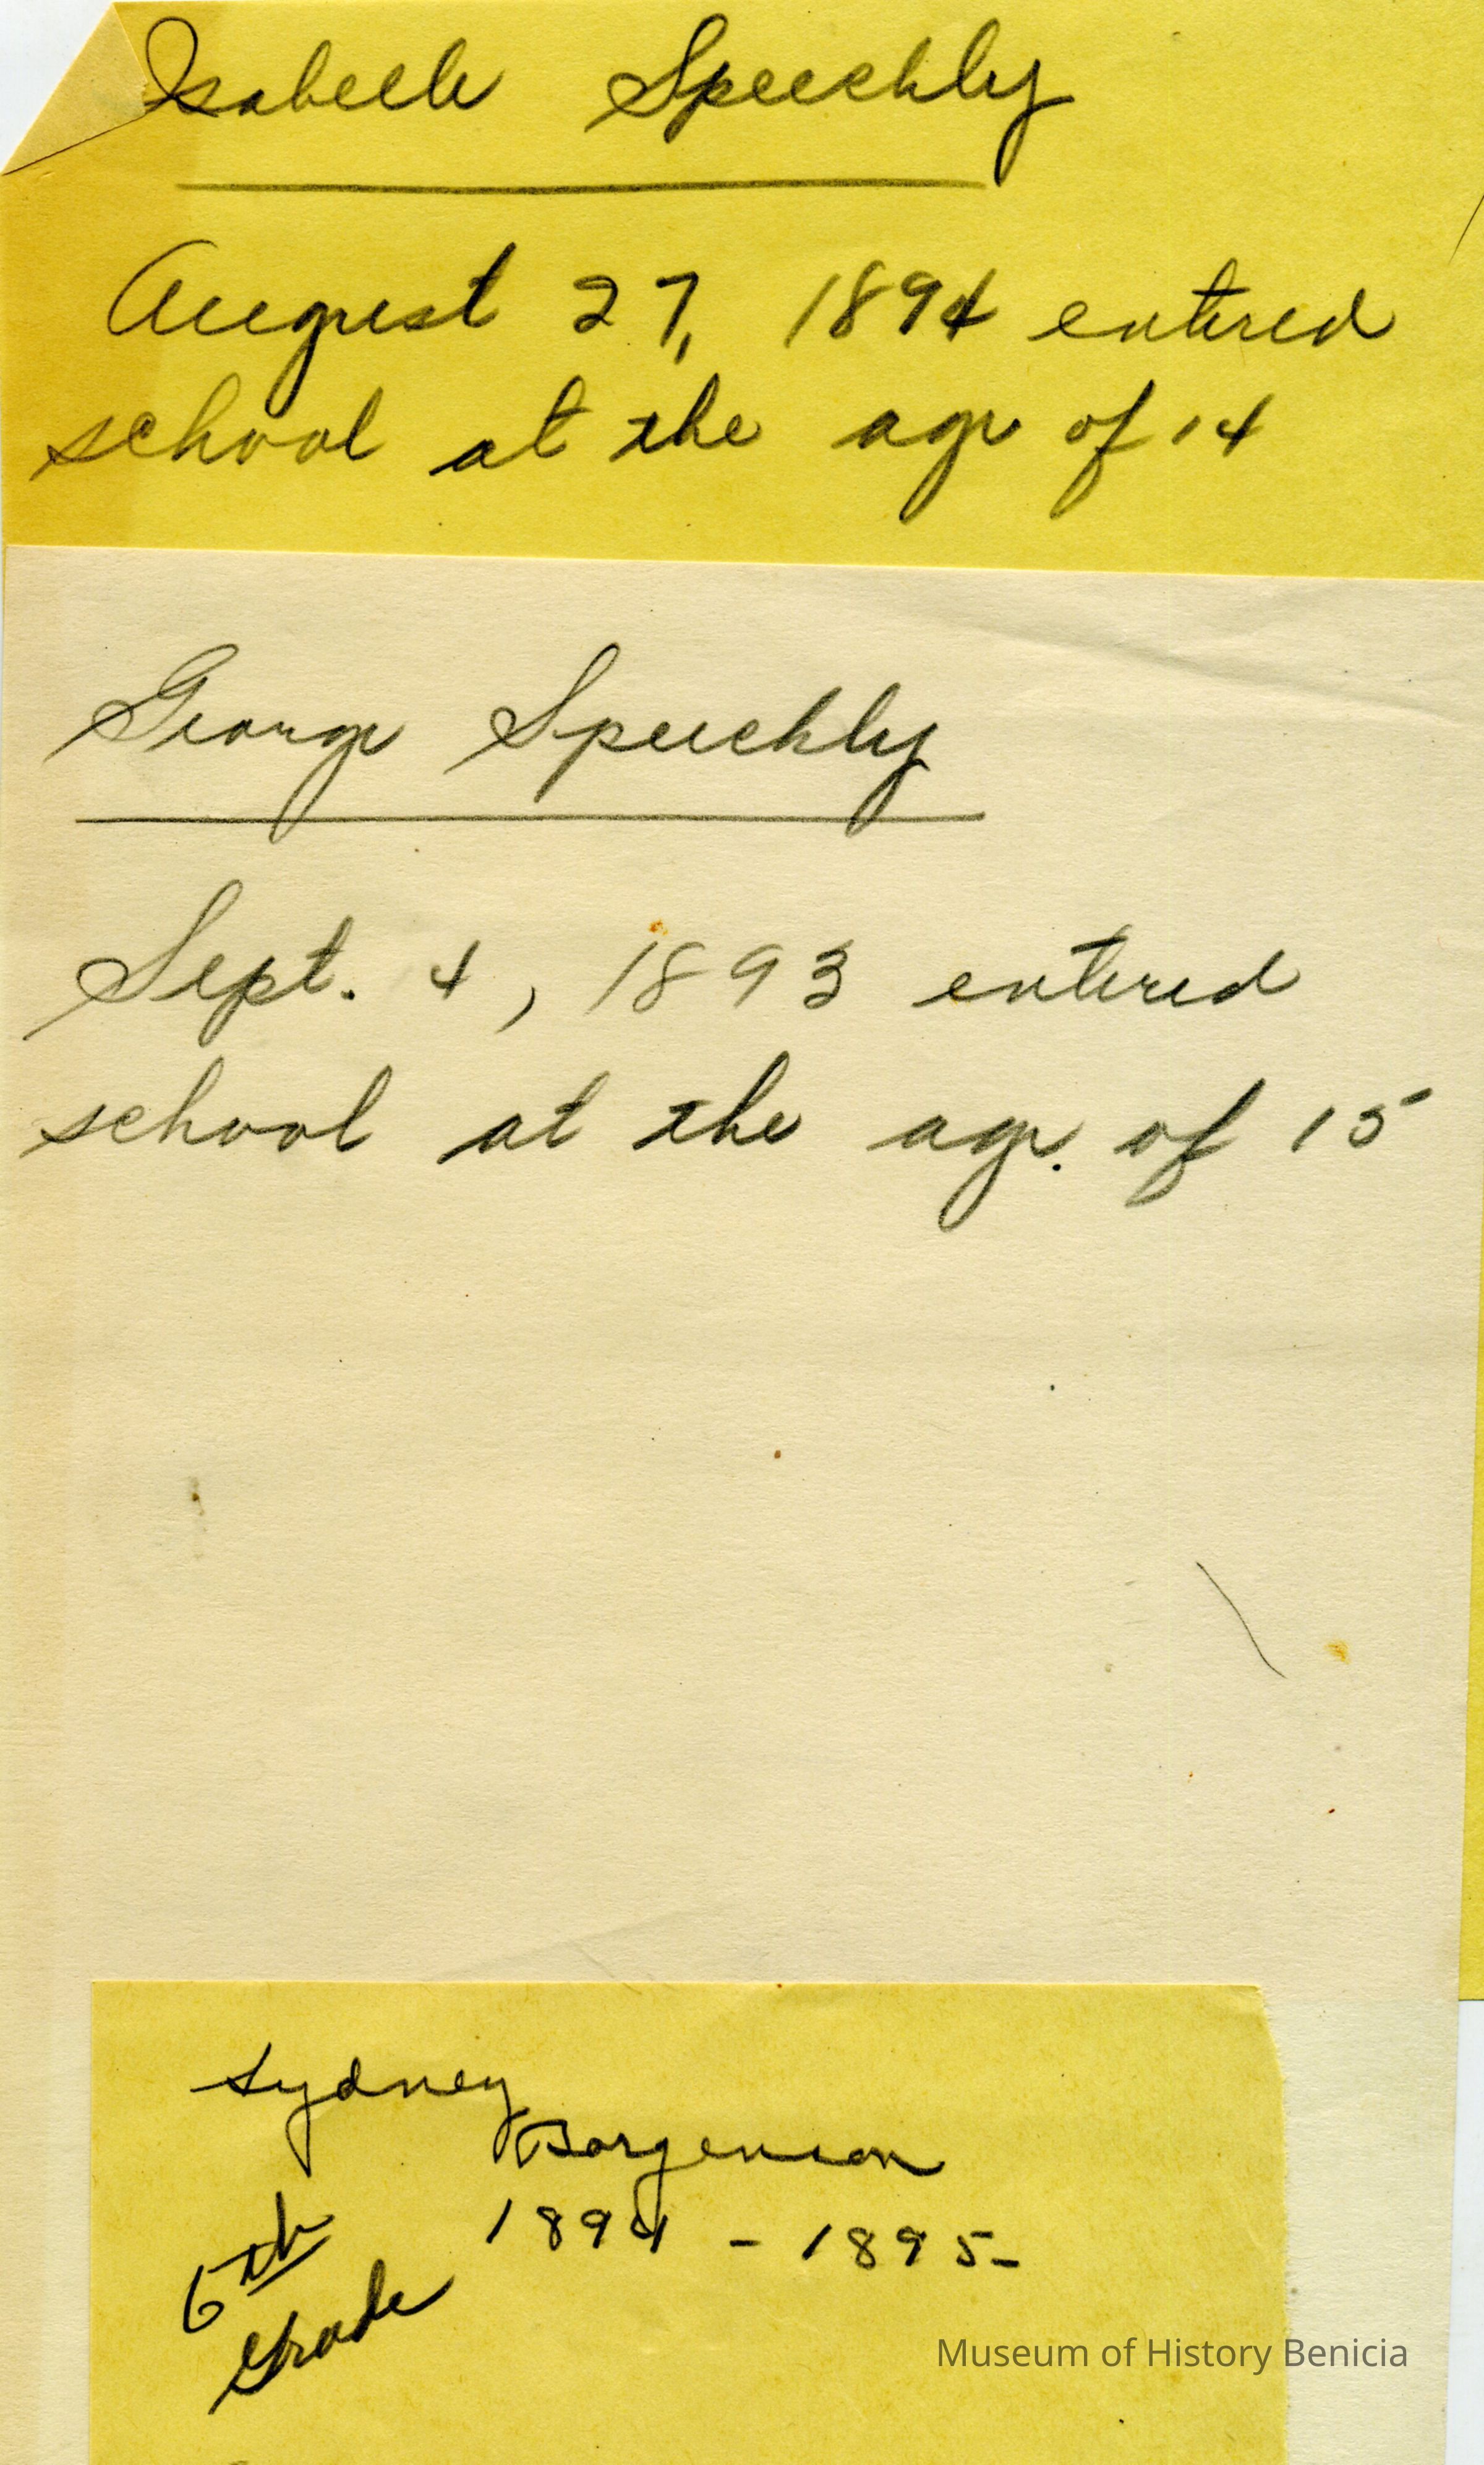 Isabelle Speechly
August 27, 1894 entered
school at the age of 14
George Speechly
Sept. 4, 1893 entered
school at the age of 15
Sydney
Borgenson
1894 - 1895
6th
Grade
Museum of History Benicia